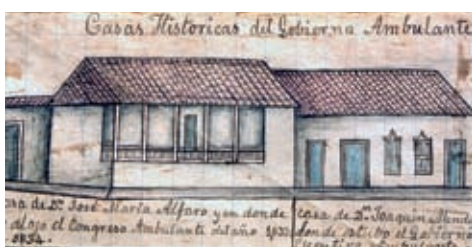 Casas Historicas del Gobierno Ambulante
casa de Dn José María Alfaro y en donde
alojo el Congreso Ambulante del año
1834.
casa de Dn Joaquin
donde estubo el Gobierno
Ambulante